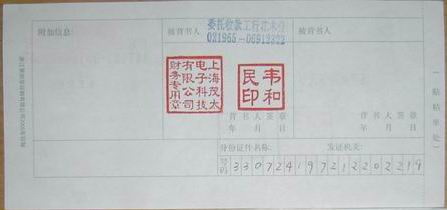 附加信息:
被背书人
委托收款工行
被背书人
上海茂太
电子科技
有限公司
财务专用章
韦和
民印
背书人签章
年 月 日
背书人签章
年 月 日
身份证件名称: 发证机关:
号码 330724197212202219